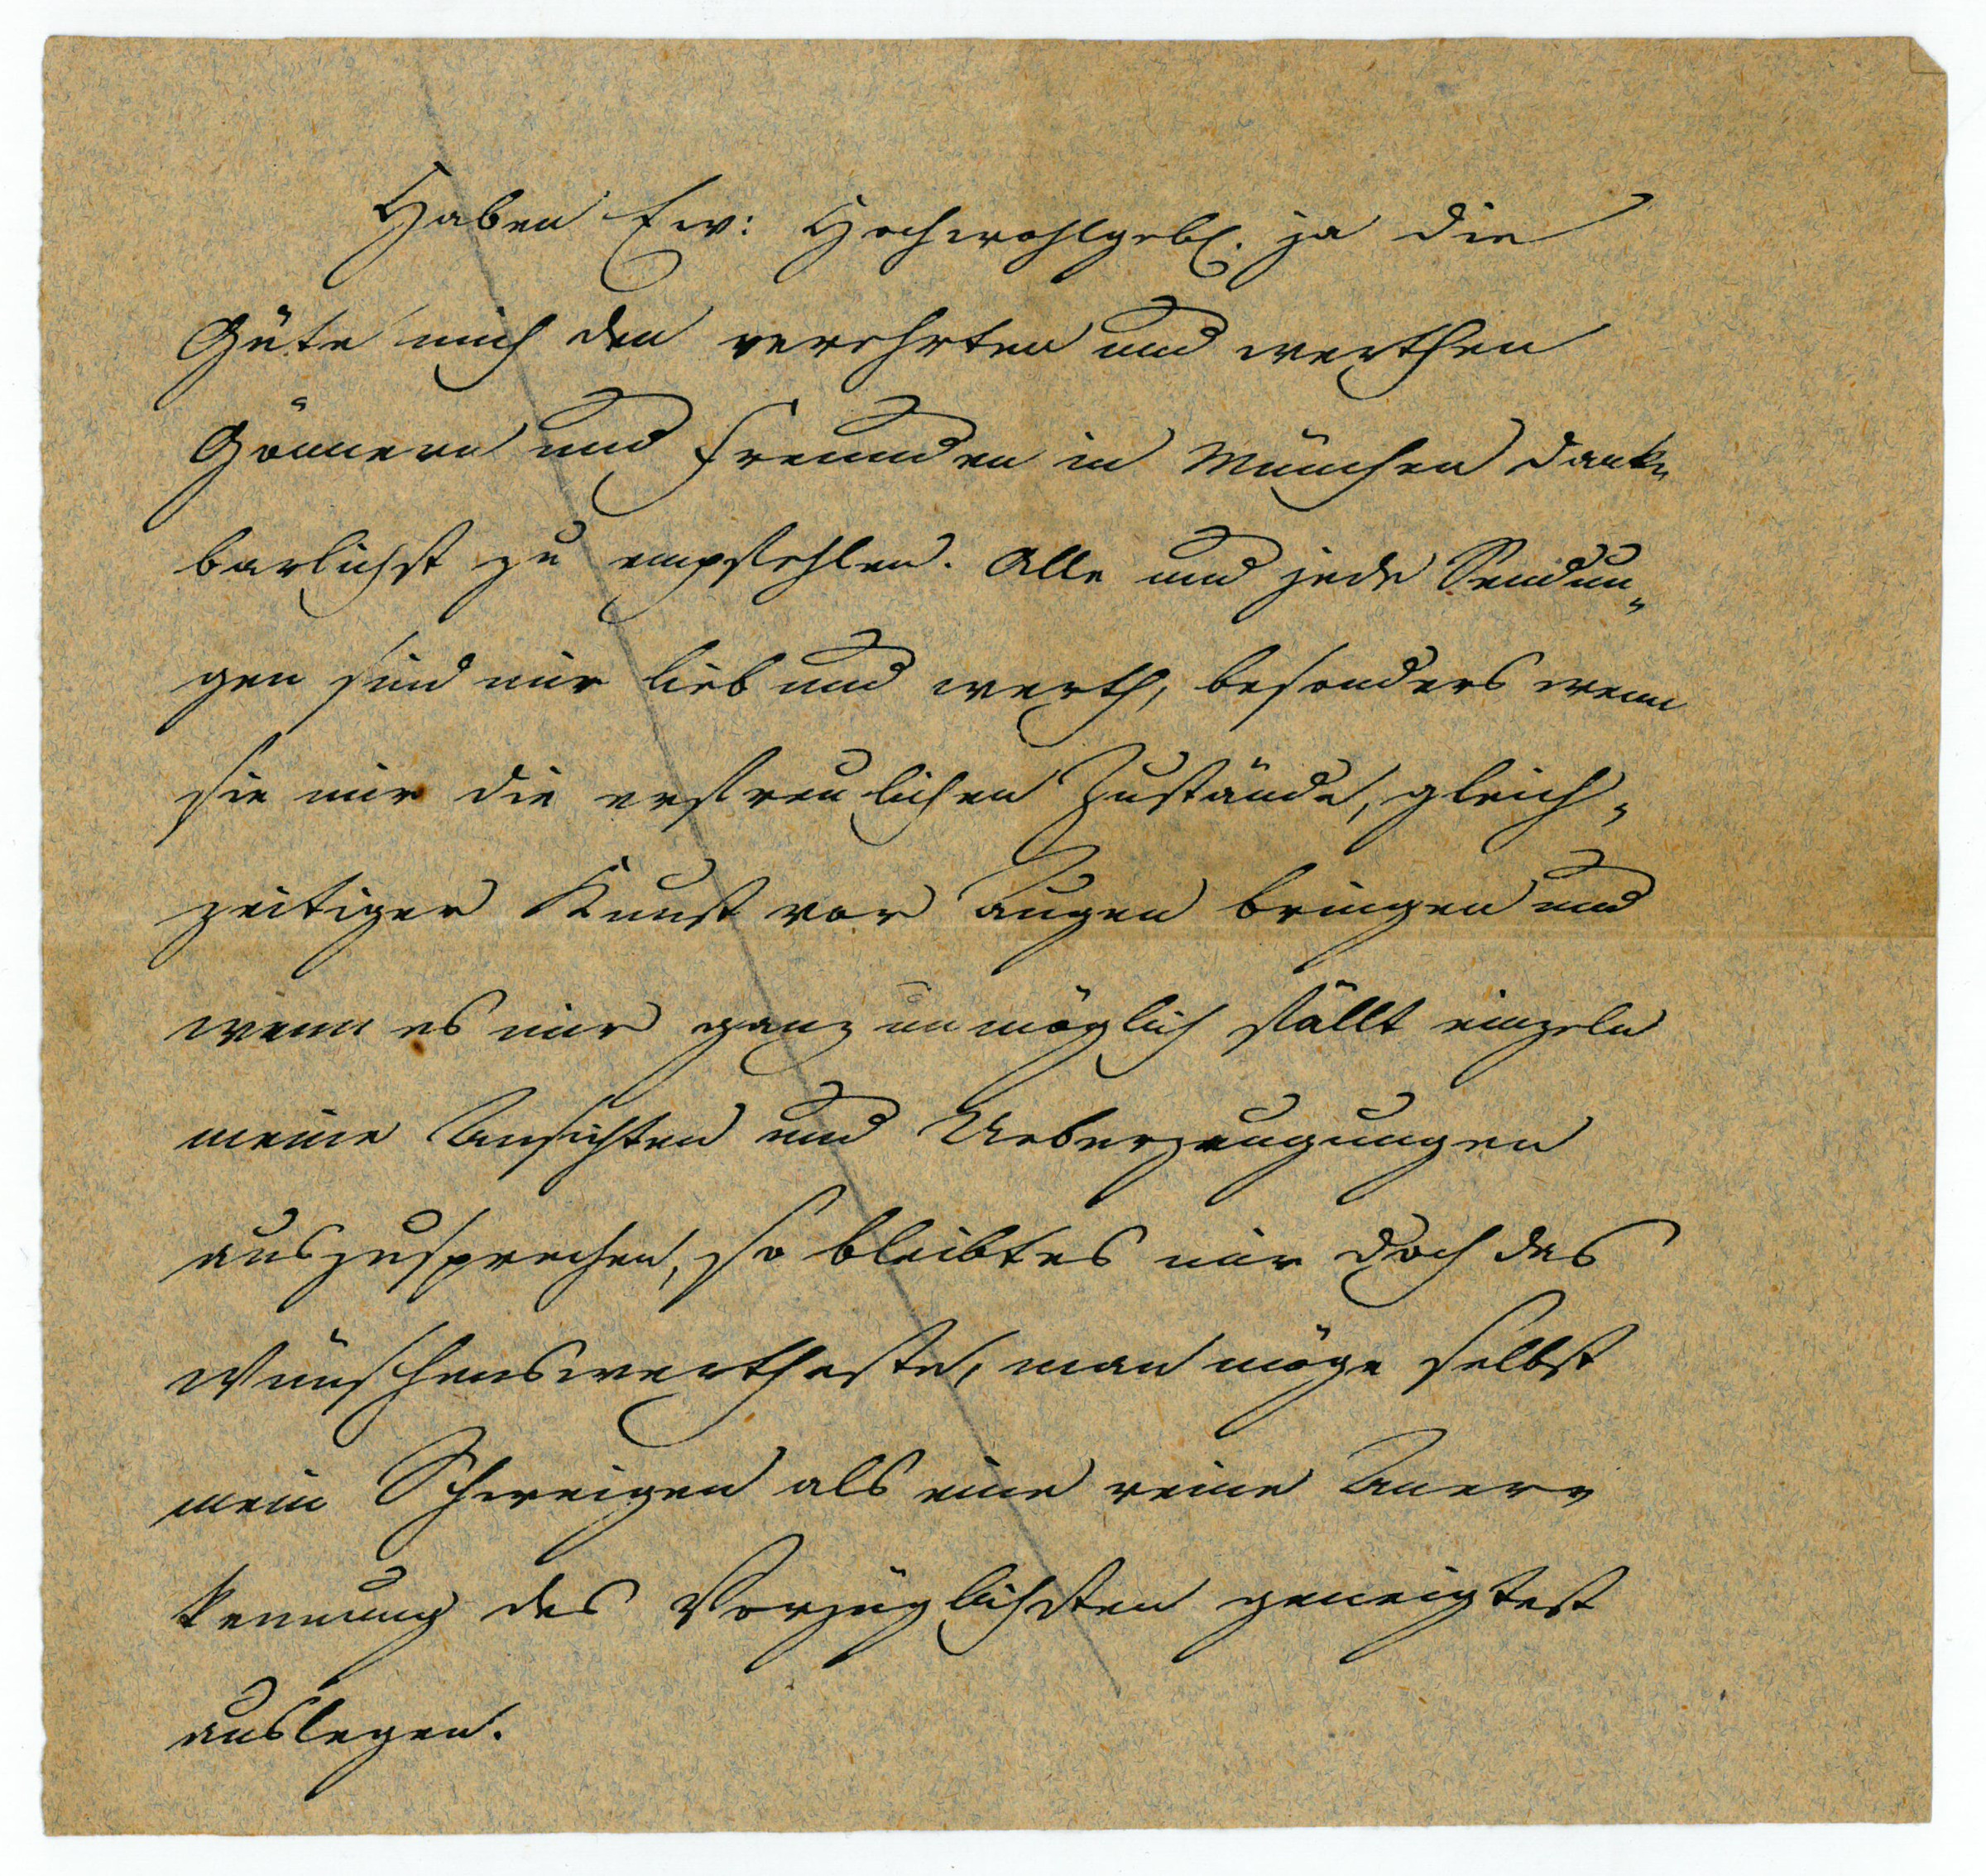 Haben Ew: Hochwohlgeb. ja die
Güte mich den verehrten und werthen
Gönnern und Freunden in München dank„
barlichst zu empfehlen. Alle und jede Sendun„
gen sind mir lieb und werth, besonders wenn
sie mir die erfreulichen Zustände, gleich„
zeitiger Kunst vor Augen bringen und
wenn es mir ganz unmöglich fällt einzeln
meine Ansichten und Ueberzeugungen
auszusprechen, so bleibt es mir doch das
Wünschenswertheste, man möge selbst
mein Schweigen als eine reine Aner„
kennung des Vorzüglichsten geneigtest
auslegen.